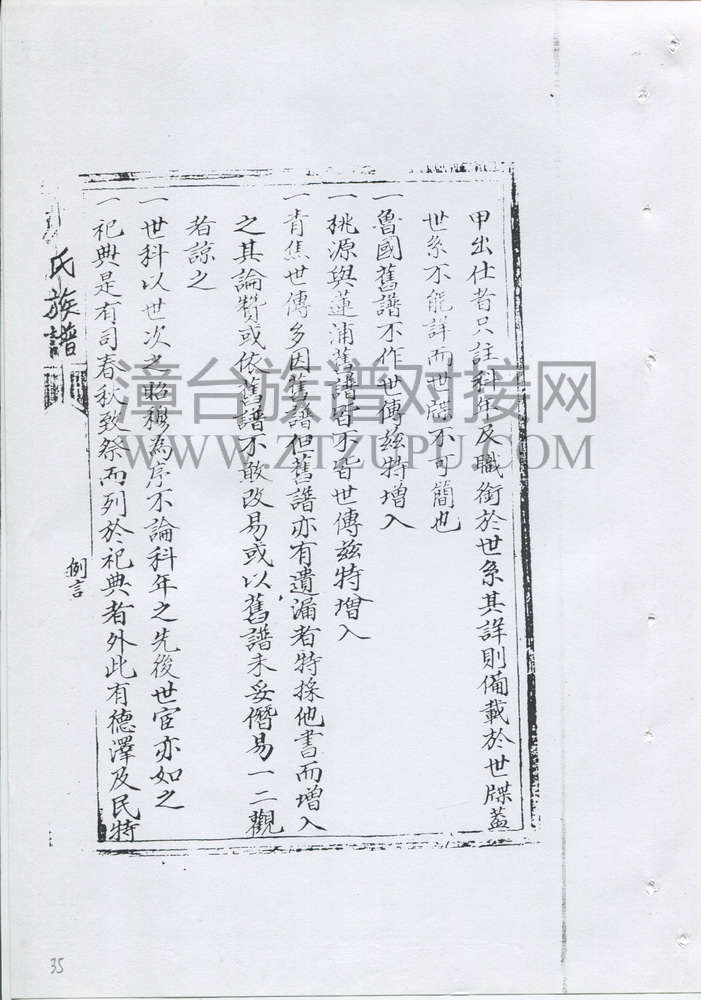 甲出仕者只註科年及職銜於世系其詳則備載於世牒蓋
世系不能詳而世牒不可簡也
一魯國舊譜不作世傳茲特增入
一桃源與蓮浦舊譜皆不皆世傳茲特增入
一青焦世傳多因舊譜但舊譜亦有遺漏者特採他書而增入
之其論贊或依舊譜不敢改易或以舊譜未妥僭易一二觀
者諒之
一世科以世次之昭穆為序不論科年之先後世宦亦如之
一祀典是有司春秋致祭而列於祀典者外此有德澤及民特
氏族譜
例言
漳台族谱对接网
WWW.ZTZUPU.COM
35